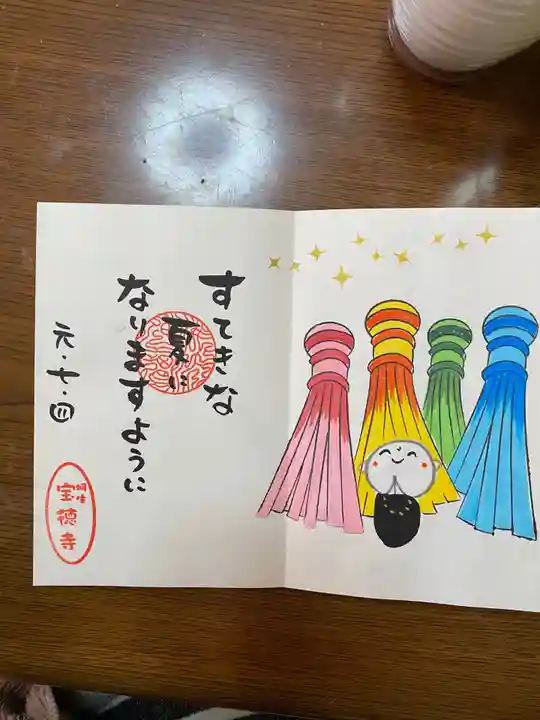 すてきな
夏に
なりますように
元・七・四
宝徳寺